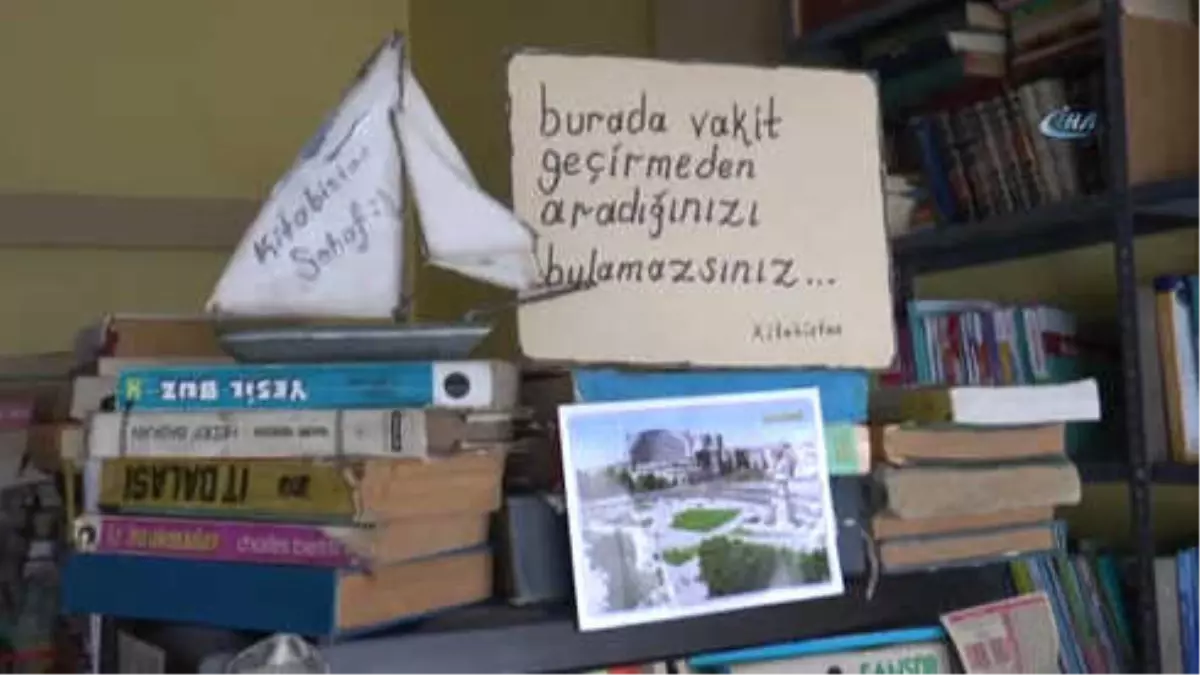 Kitabistan
Sahaf :)
burada vakit
geçirmeden
aradığınızı
bulamazsınız...
Kitabistan
İHA
YEŞİL BUZ
İT DALAŞI
charles
SANSÖR